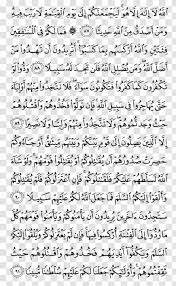 ٱللَّهُ لَآ إِلَٰهَ إِلَّا هُوَ لَيَجْمَعَنَّكُمْ إِلَىٰ يَوْمِ ٱلْقِيَٰمَةِ لَا رَيْبَ فِيهِ
وَمَنْ أَصْدَقُ مِنَ ٱللَّهِ حَدِيثًا ٨٧ ۞ فَمَا لَكُمْ فِي ٱلْمُنَٰفِقِينَ
فِئَتَيْنِ وَٱللَّهُ أَرْكَسَهُم بِمَا كَسَبُوٓا۟ أَتُرِيدُونَ أَن تَهْدُوا۟ مَنْ
أَضَلَّ ٱللَّهُ وَمَن يُضْلِلِ ٱللَّهُ فَلَن تَجِدَ لَهُۥ سَبِيلًا ٨٨ وَدُّوا۟ لَوْ
تَكْفُرُونَ كَمَا كَفَرُوا۟ فَتَكُونُونَ سَوَآءً فَلَا تَتَّخِذُوا۟ مِنْهُمْ أَوْلِيَآءَ
حَتَّىٰ يُهَاجِرُوا۟ فِي سَبِيلِ ٱللَّهِ فَإِن تَوَلَّوْا۟ فَخُذُوهُمْ وَٱقْتُلُوهُمْ
حَيْثُ وَجَدتُّمُوهُمْ وَلَا تَتَّخِذُوا۟ مِنْهُمْ وَلِيًّا وَلَا نَصِيرًا ٨٩
إِلَّا ٱلَّذِينَ يَصِلُونَ إِلَىٰ قَوْمٍۭ بَيْنَكُمْ وَبَيْنَهُم مِّيثَٰقٌ أَوْ جَآءُوكُمْ
حَصِرَتْ صُدُورُهُمْ أَن يُقَٰتِلُوكُمْ أَوْ يُقَٰتِلُوا۟ قَوْمَهُمْ وَلَوْ شَآءَ
ٱللَّهُ لَسَلَّطَهُمْ عَلَيْكُمْ فَلَقَٰتَلُوكُمْ فَإِنِ ٱعْتَزَلُوكُمْ فَلَمْ يُقَٰتِلُوكُمْ
وَأَلْقَوْا۟ إِلَيْكُمُ ٱلسَّلَمَ فَمَا جَعَلَ ٱللَّهُ لَكُمْ عَلَيْهِمْ سَبِيلًا ٩٠
سَتَجِدُونَ ءَاخَرِينَ يُرِيدُونَ أَن يَأْمَنُوكُمْ وَيَأْمَنُوا۟ قَوْمَهُمْ كُلَّ
مَا رُدُّوٓا۟ إِلَى ٱلْفِتْنَةِ أُرْكِسُوا۟ فِيهَا فَإِن لَّمْ يَعْتَزِلُوكُمْ وَيُلْقُوٓا۟ إِلَيْكُمُ
ٱلسَّلَمَ وَيَكُفُّوٓا۟ أَيْدِيَهُمْ فَخُذُوهُمْ وَٱقْتُلُوهُمْ حَيْثُ
ثَقِفْتُمُوهُمْ وَأُو۟لَٰٓئِكُمْ جَعَلْنَا لَكُمْ عَلَيْهِمْ سُلْطَٰنًا مُّبِينًا ٩١